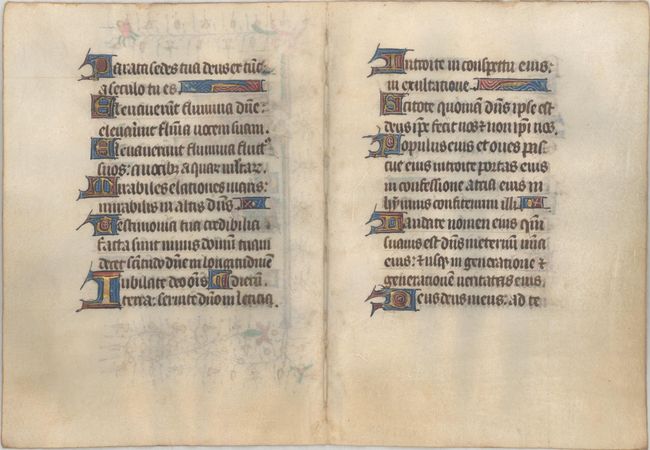 Parata sedes tua deus ex tūc
a seculo tu es.
Eleuauerūt flumina dn̄e:
eleuauerūt flūia uocem suam.
Eleuauerunt flumina fluct⁹
suos: a uocibꝫ aquar multar.
Mirabiles elationes maris:
mirabilis in altis dn̄s.
Testimonia tua credibilia
facta sunt nimis domum tuam
decet sc̄itudo dn̄e in longitudinē
Iubilate deo om̄s dierū.
terra: seruite dn̄o in leticia.
Introite in conspectu eius:
in exultatione.
Scitote quoniā dn̄s ipse est
deus ip̄e fecit nos ⁊ non ip̄i nos.
Populus eius et oues pas
cue eius introite portas eius
in confessione atria eius in
hymnis confitemini illi.
Laudate nomen eius qm̄
suauis est dn̄s in eternū mīa
eius: ⁊ usqꝫ in generatione ⁊
generationē ueritas eius.
Deus deus meus: ad te